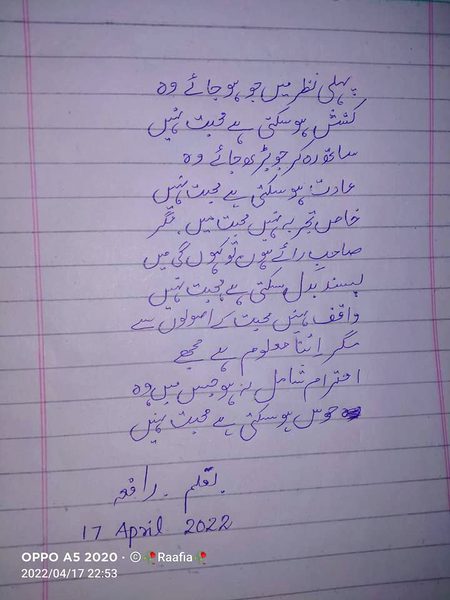 پہلی نظر میں جو ہو جائے وہ
کشش ہو سکتی ہے محبت نہیں
ساتھ رہ کر جو پڑ جائے وہ
عادت ہو سکتی ہے محبت نہیں
خاص تجربہ نہیں محبت میں، مگر
صاحبِ رائے ہوں تو کہوں گی میں
پسند بدل سکتی ہے محبت نہیں
واقف نہیں محبت کے اصولوں سے
مگر اتنا معلوم ہے مجھے
احترام شامل نہ ہو جس میں وہ
حوس ہو سکتی ہے محبت نہیں
بقلم . رافعہ
17 April 2022
OPPO A5 2020 · ©🌹Raafia🌹
2022/04/17 22:53